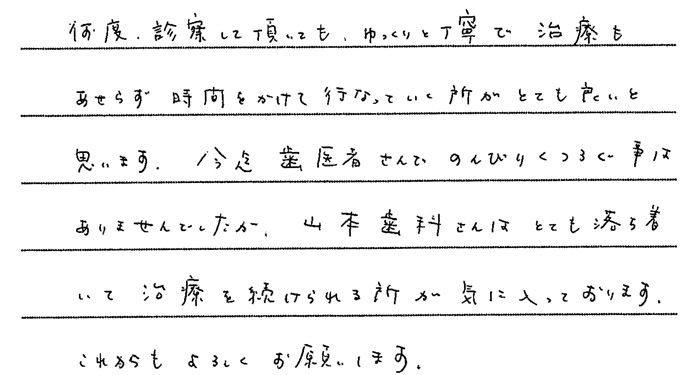 何度、診察して頂いても、ゆっくりと丁寧で 治療も
あせらず 時間をかけて 行なっていく所が とても良いと
思います。 今迄 歯医者さんで のんびりくつろぐ事は
ありませんでしたが、 山本歯科さんは とても落ち着
いて 治療を続けられる所が 気に入っております。
これからも よろしく お願いします。